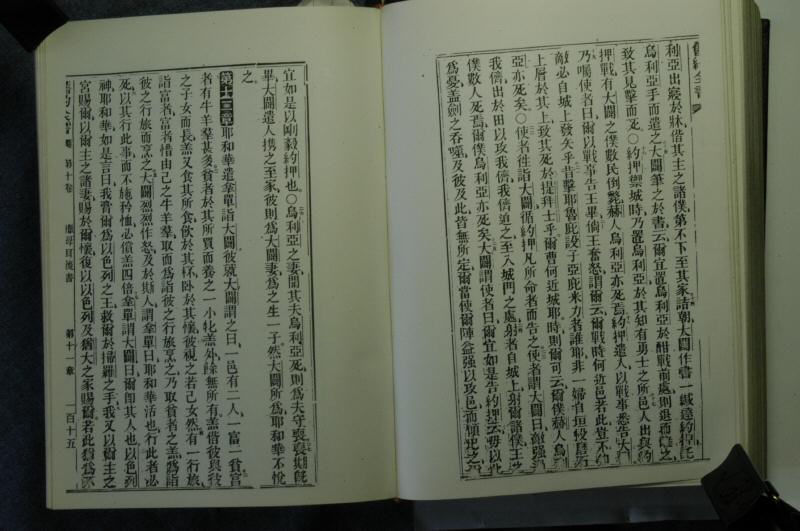 舊約全書
利亞出寢於牀偕其主之諸僕第不下至其家詰朝大闢作書一緘達約押託
烏利亞手而遣之大闢筆之於書云爾宜置烏利亞於酣戰前處則退而
致其見擊而死○約押禦城時乃置烏利亞於其知有勇士之所邑人出與約
押戰有大闢之僕數民倒斃赫人烏利亞亦死焉約押遣人以戰事悉告大
乃囑使者曰爾以戰事告王畢倘王奮怒謂爾云爾戰時何近邑若此豈不
敵必自城上發矢乎昔擊耶魯庇設子亞庇米力者誰耶非一婦自垣投
上磨於其上致其死於提拜士乎爾曹何近城耶時則可云爾僕赫人烏
亞亦死矣○使者往詣大闢循約押凡所命者而告之使者謂大闢曰敵強
我儕出於田以攻我儕我儕迫之至入城門之處射者自城上射爾諸僕王之
僕數人死焉爾僕烏利亞亦死矣大闢謂使者曰爾宜如是告約押云毋以此
為憂蓋劍之吞噬及彼及此皆無所定爾當使爾陣益强以攻邑而傾圮之
宜如是以剛毅約押也○烏利亞之妻聞其夫烏利亞死則為夫守喪喪期
畢大闢遣人攜之至家彼則為大闢妻為之生一子然大闢所為耶和華不悅
之
第十二章耶和華遣拿單詣大闢彼就大闢謂之曰一邑有二人一富一貧富
者有牛羊羣甚多貧者於其所買而養之一小牝羔外餘無所有羔偕彼與彼
之子女而長羔又食其所食飲於其杯臥於其懷彼視之若己女然有一行旅
詣富者富者惜由己之牛羊羣取而為詣彼之行旅烹之乃取貧者之羔為詣
彼之行旅而烹之大闢烈烈作怒及於斯人謂拿單曰耶和華活也行此者必
死以其行此事而不施矜恤必償羔四倍拿單謂大闢曰爾即其人也以色列
神耶和華如是言曰我膏爾為以色列之王救爾於掃羅之手我又以爾主之
宮賜爾以爾主之諸妻賜於爾懷復以以色列及猶大之家賜爾若此猶為
舊約全書 第十卷 撒母耳後書 第十一章 一百十五